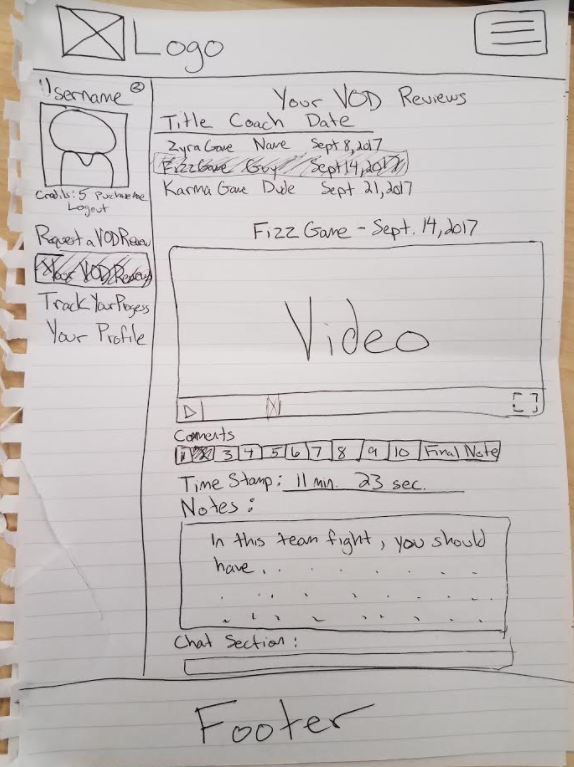 Logo
Username
Credits: 5 Purchase More
Logout
Request a VOD Review
Your VOD Reviews
Track Your Progess
Your Profile
Your VOD Reviews
Title Coach Date
Zyra Game Name Sept 8, 2017
Fizz Game Guy Sept 14, 2017
Karma Game Dude Sept 21, 2017
Fizz Game - Sept. 14, 2017
Video
Comments
1 2 3 4 5 6 7 8 9 10 Final Note
Time Stamp: 11 min. 23 sec.
Notes:
In this team fight, you should
have . . . . . . .
Chat Section:
Footer